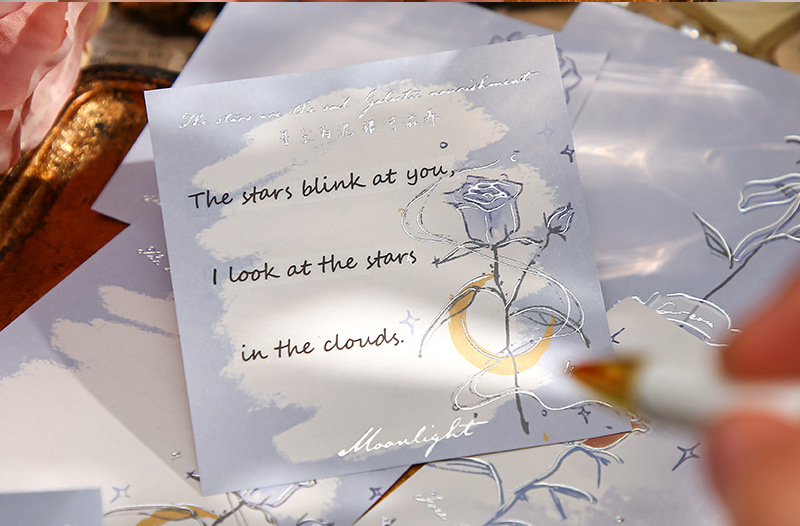 The stars are the soil Galactic nourishment
星空为泥 银河滋养
The stars blink at you,
I look at the stars
in the clouds.
Moonlight